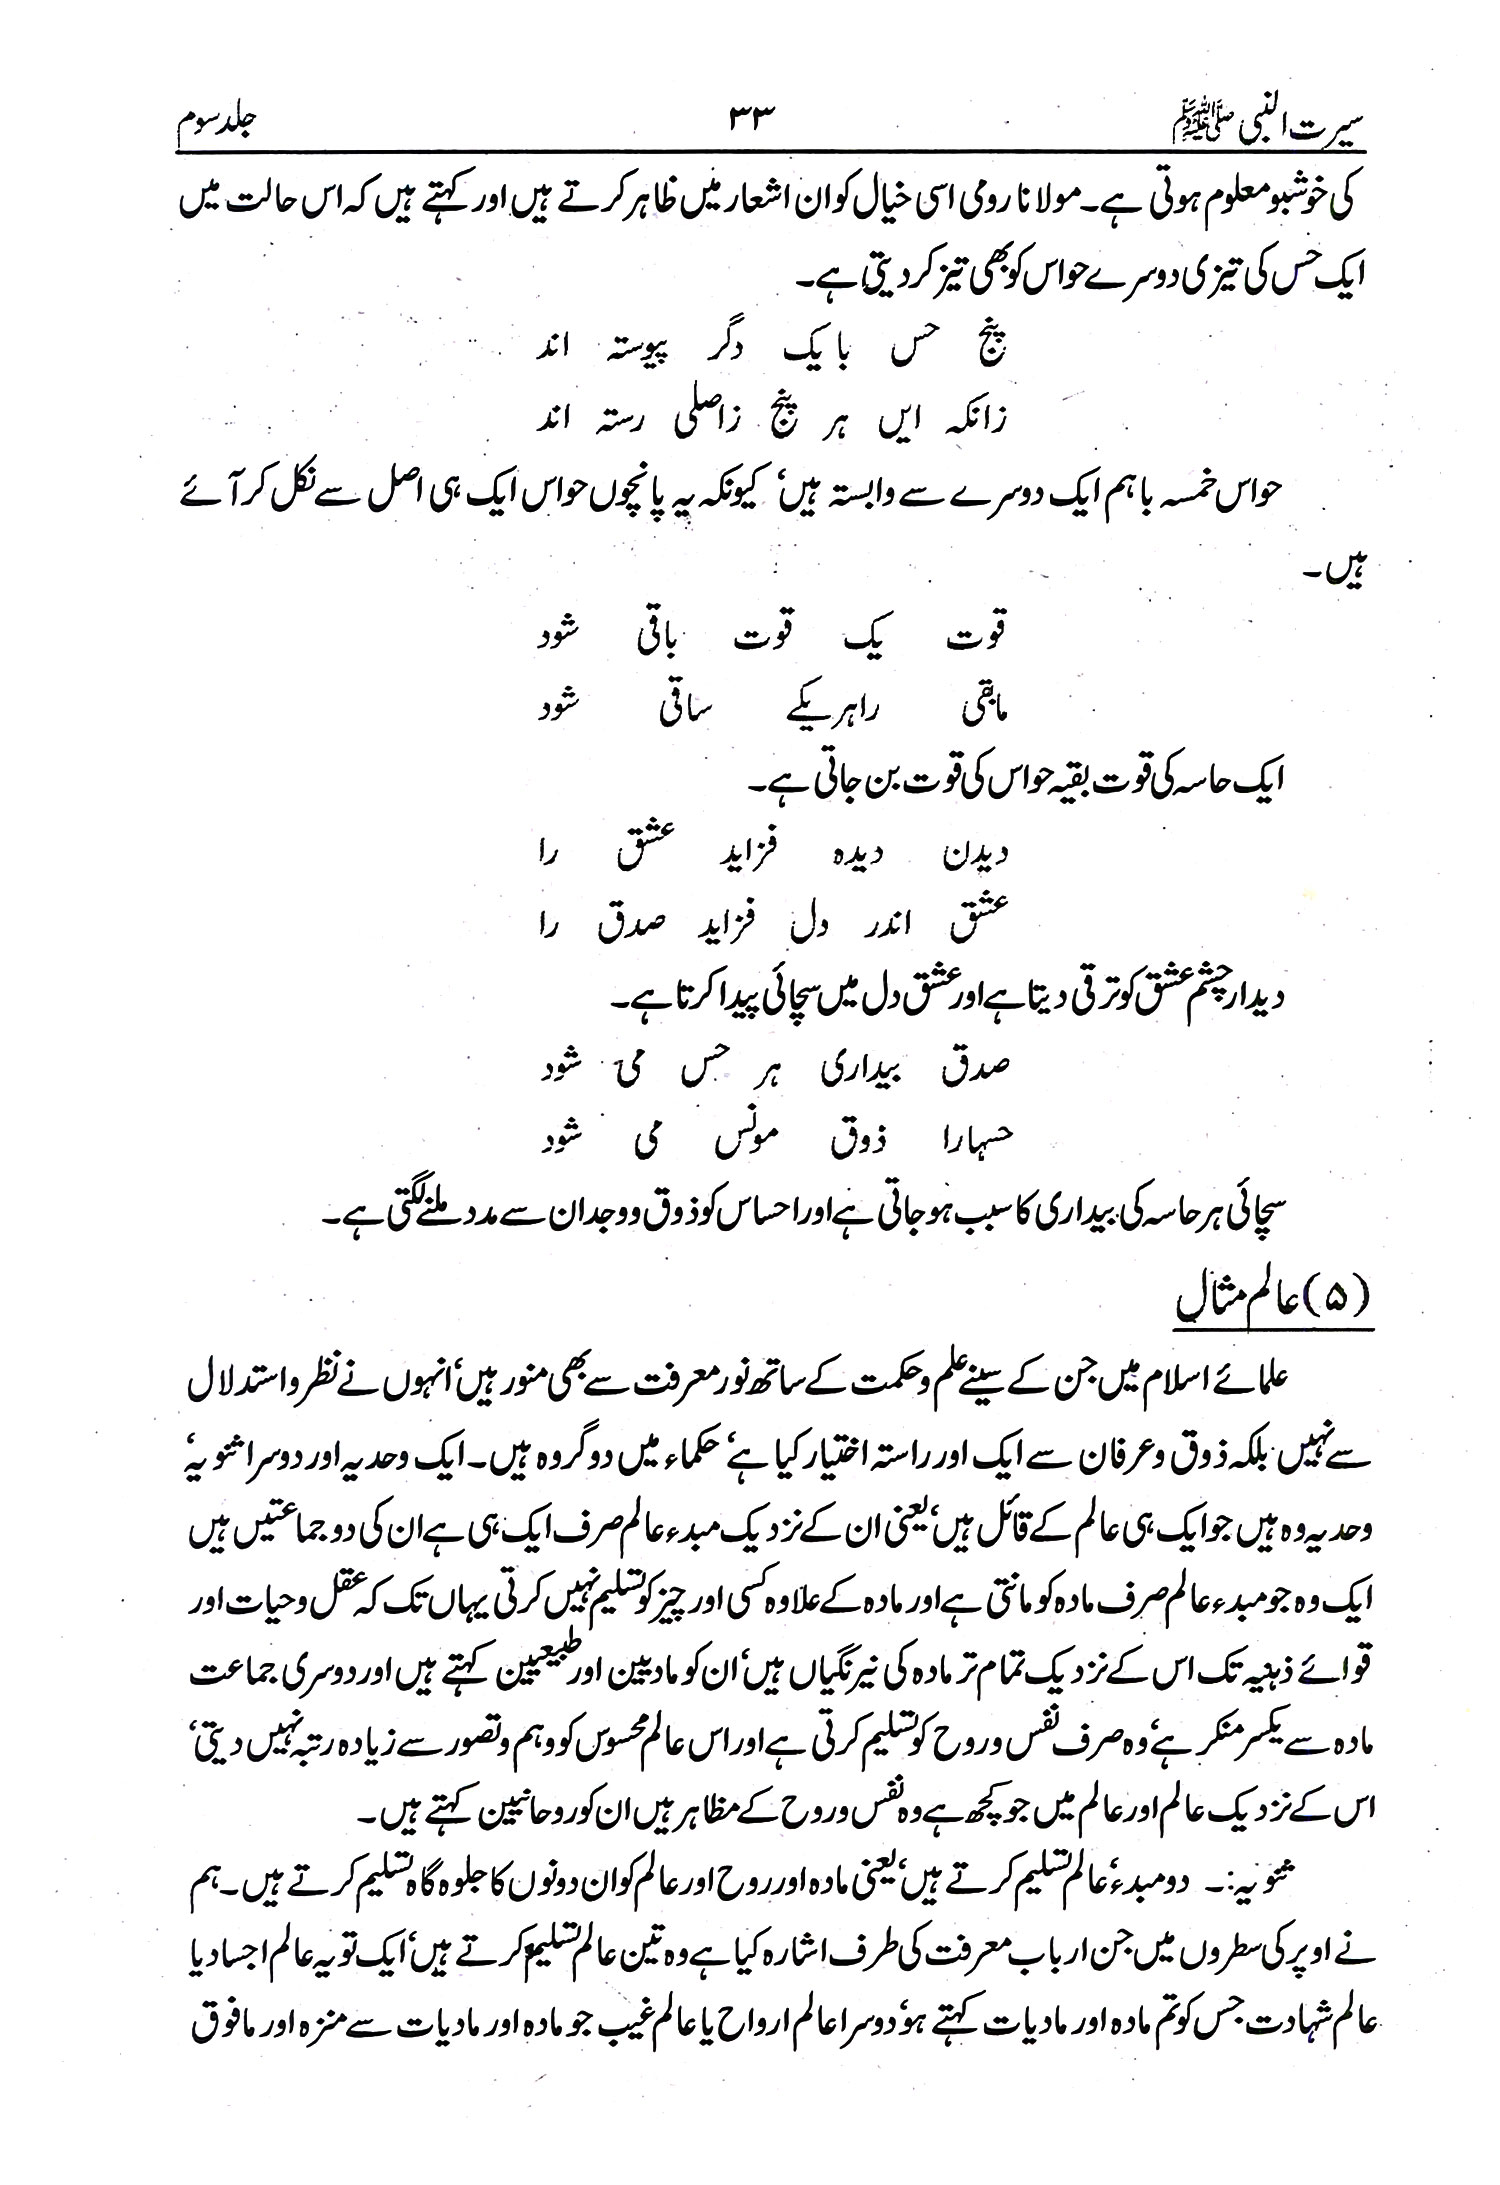 سیرت النبی ﷺ ۳۳ جلد سوم
کی خوشبو معلوم ہوتی ہے۔ مولانا رومی اسی خیال کو ان اشعار میں ظاہر کرتے ہیں اور کہتے ہیں کہ اس حالت میں
ایک حس کی تیزی دوسرے حواس کو بھی تیز کر دیتی ہے۔
پنج حس با یک دگر پیوستہ اند
زانکہ ایں ہر پنج زاصلی رستہ اند
حواس خمسہ باہم ایک دوسرے سے وابستہ ہیں‘ کیونکہ یہ پانچوں حواس ایک ہی اصل سے نکل کر آئے
ہیں۔
قوت یک قوت باقی شود
مابقی راہریکے ساقی شود
ایک حاسہ کی قوت بقیہ حواس کی قوت بن جاتی ہے۔
دیدن دیدہ فزاید عشق را
عشق اندر دل فزاید صدق را
دیدار چشم عشق کو ترقی دیتا ہے اور عشق دل میں سچائی پیدا کرتا ہے۔
صدق بیداری ہر حس می شود
حسہارا ذوق مونس می شود
سچائی ہر حاسہ کی بیداری کا سبب ہو جاتی ہے اور احساس کو ذوق و وجدان سے مدد ملنے لگتی ہے۔
(۵) عالم مثال
علمائے اسلام میں جن کے سینے علم و حکمت کے ساتھ نور معرفت سے بھی منور ہیں‘ انہوں نے نظر و استدلال
سے نہیں بلکہ ذوق و عرفان سے ایک اور راستہ اختیار کیا ہے‘ حکماء میں دو گروہ ہیں۔ ایک وحدیہ اور دوسرا ثنویہ‘
وحدیہ وہ ہیں جو ایک ہی عالم کے قائل ہیں‘ یعنی ان کے نزدیک مبدء عالم صرف ایک ہی ہے ان کی دو جماعتیں ہیں
ایک وہ جو مبدء عالم صرف مادہ کو مانتی ہے اور مادہ کے علاوہ کسی اور چیز کو تسلیم نہیں کرتی یہاں تک کہ عقل و حیات اور
قوائے ذہنیہ تک اس کے نزدیک تمام تر مادہ کی نیرنگیاں ہیں‘ ان کو مادیین اور طبیعیین کہتے ہیں اور دوسری جماعت
مادہ سے یکسر منکر ہے‘ وہ صرف نفس و روح کو تسلیم کرتی ہے اور اس عالم محسوس کو وہم و تصور سے زیادہ رتبہ نہیں دیتی‘
اس کے نزدیک عالم اور عالم میں جو کچھ ہے وہ نفس و روح کے مظاہر ہیں ان کو روحانیین کہتے ہیں۔
ثنویہ:۔ دو مبدء‘ عالم تسلیم کرتے ہیں‘ یعنی مادہ اور روح اور عالم کو ان دونوں کا جلوہ گاہ تسلیم کرتے ہیں۔ ہم
نے اوپر کی سطروں میں جن ارباب معرفت کی طرف اشارہ کیا ہے وہ تین عالم تسلیم کرتے ہیں‘ ایک تو یہ عالم اجساد یا
عالم شہادت جس کو تم مادہ اور مادیات کہتے ہو‘ دوسرا عالم ارواح یا عالم غیب جو مادہ اور مادیات سے منزہ اور مافوق